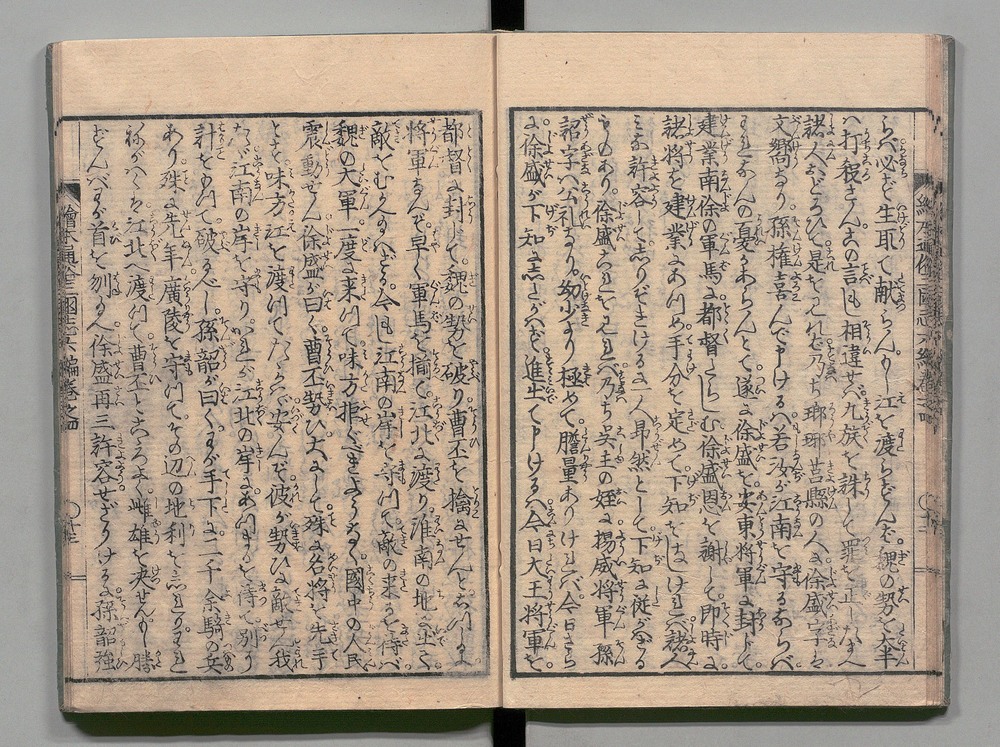 らバ必ず生取て献らんもし江を渡らずんバ魏の勢を太半
打殺さん若この言にも相違せバ九族を誅して罪を正したまへ
諸人おどろひて是をみれバ乃ち瑯琊莒縣の人徐盛字ハ
文嚮なり孫權喜んで申けるハ君汝が江南を守るならバ
われなんの憂かあらんとて遂に徐盛を安東将軍に封じて
建業南徐の軍馬に都督たらしむ徐盛恩を謝して即時に
諸将を建業にあつめ手分を定めて下知をつたへけれバ諸人
みな許容してしりぞきけるに一人昂然として下知に従がハざる
ものあり徐盛これをみれバ乃ち呉主の姪に揚威将軍孫
韶字ハ公礼なり幼少より極めて膽量ありけれバ今日さら
に徐盛が下知にしたがハず進出て申けるハ今日大王将軍を
都督に封じて魏の勢を破り曹丕を擒にせんとしたまふに
将軍なんぞ早く軍馬を催て江北に渡り淮南の地に出て
敵をむかへたまハざる今もし江南の岸を守つて敵の来るを待バ
魏の大軍一度に来つて味方拒ぐべきやうなく國中の人民
震動せん徐盛が曰く曹丕勢ひ大にして殊に名将を先手
とす味方江を渡つてたゝかハゞ安んぞ彼が勢ひに敵せん我
たゞ江南の岸を守りかれが江北の岸にあつまるを待て別に
計をもつて破るべし孫韶が曰くわが手下に三千余騎の兵
あり殊に先年廣陵を守つてその辺の地利をしれりわれ
ねがハくハ江北へ渡つて曹丕とこゝろよく雌雄を决せんもし勝
ずんバわが首を刎たまへ徐盛再三許容せざりけるに孫韶強
繪本通俗三國志六編巻之四